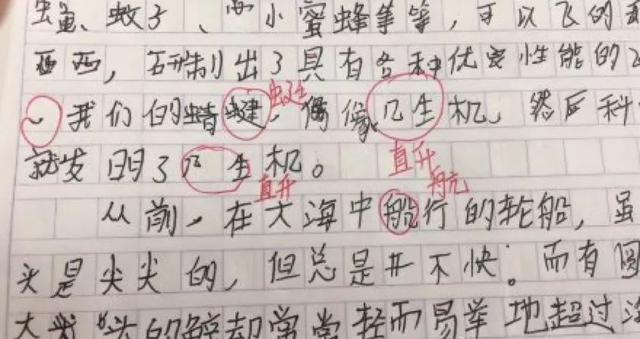 蚊子、 小蜜蜂等等,可以飞的
西,研制出了具有各种优良性能的
我们的蜻 蜓 偶像 生机。然后科
就发明了 生机。 直升
直升 航
从前,在大海中船行的轮船,虽
头是尖尖的,但总是开不快。而有圆
大 头的 却常常轻而易举地超过